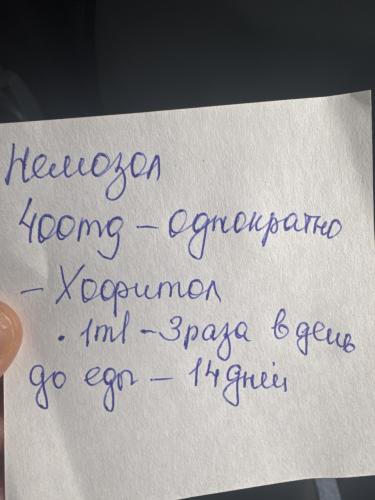 Немозол
400mg – однократно
– Хофитол
• 1ml – 3 раза в день
до еды – 14 дней